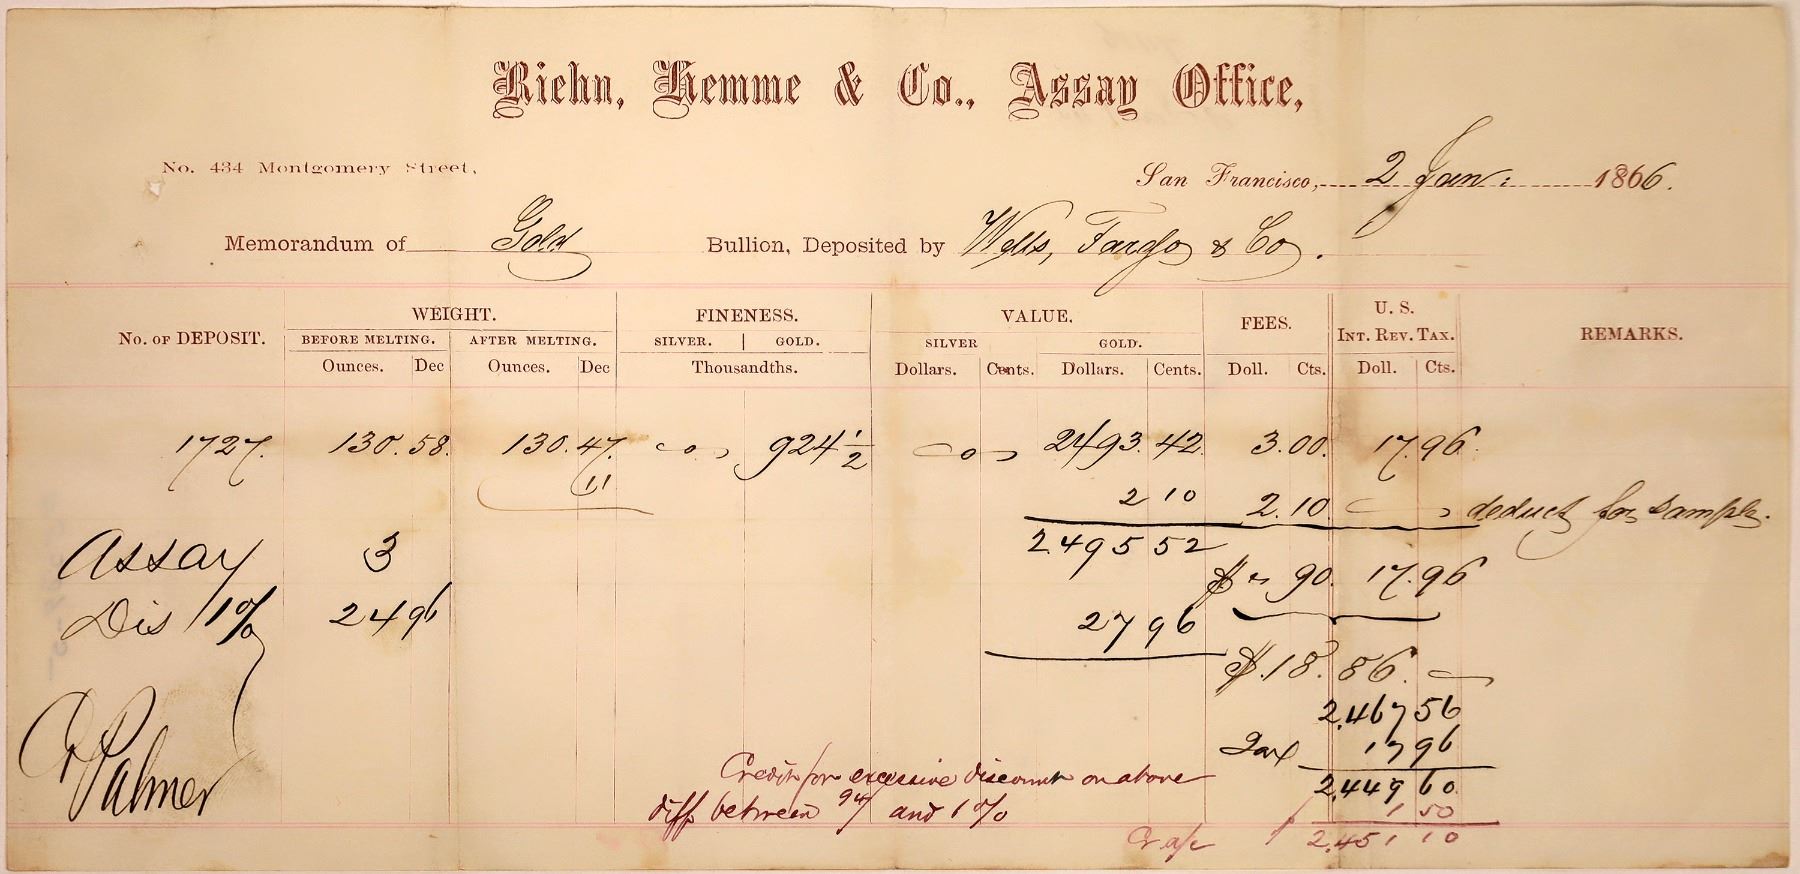 Riehn, Hemme & Co., Assay Office,
No. 434 Montgomery Street,
San Francisco, 2 Jan: 1866.
Memorandum of Gold Bullion, Deposited by Wells, Fargo & Co.
No. of DEPOSIT. WEIGHT. FINENESS. VALUE. FEES. U. S. INT. REV. TAX. REMARKS.
BEFORE MELTING. AFTER MELTING. SILVER. GOLD. SILVER GOLD.
Ounces. Dec Ounces. Dec Thousandths. Dollars. Cents. Dollars. Cents. Doll. Cts. Doll. Cts.
1727. 130.58. 130.47. 924 1/2 2493.42. 3.00. 17.96.
11 2 10 2.10 deduct for sample.
2495 52
Assay 3 $ 90. 17.96
Dis 1% 24 96 27 96
$.18.86.
2,467 56
Tax 17 96
Palmer
Credit for excessive discount on above 2,449 60
diff between and 1% 1 50
2,451 10